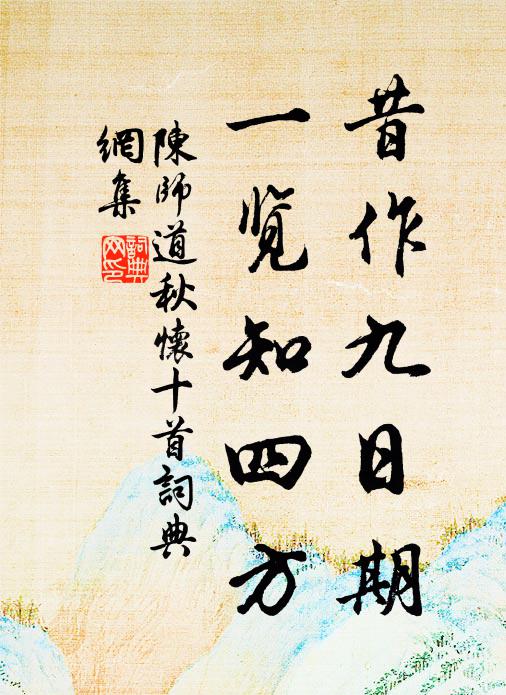 昔作九日期
一览知四方
陳師道秋懷十首詞典
網集
詞典網印